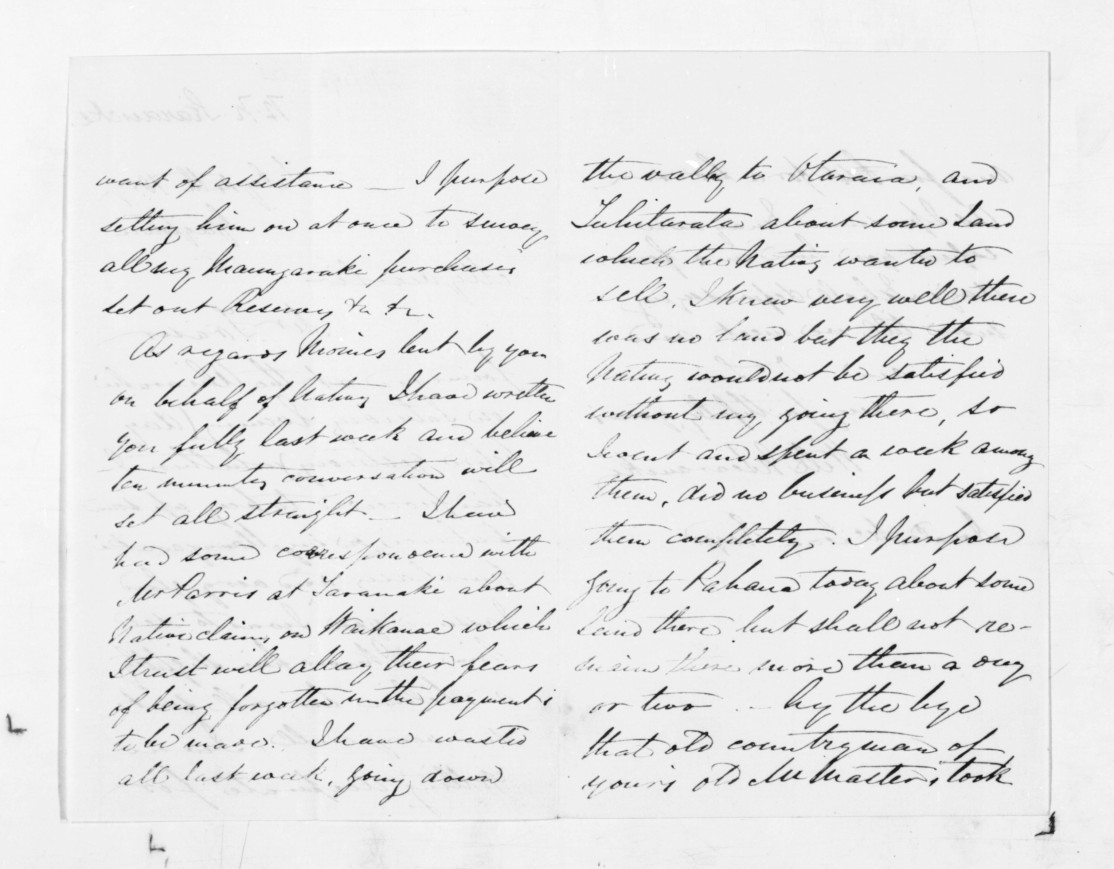 want of assistance — I purpose
setting him on at once to survey
all my Maungaraki purchases
set out Reserves &c &c.
As regards Monies lent by you
on behalf of Natives I have written
you fully last week and believe
ten minutes conversation will
set all straight — I have
had some correspondence with
Mr Parris at Taranaki about
Native claims on Waikanae which
I trust will allay their fears
of being forgotten in the payments
to be made. I have wasted
all last week, going down
the vally to Otaraia, and
Tuhitarata about some Land
which the Natives wanted to
sell. I knew very well there
was no land but they the
Natives would not be satisfied
without my going there, so
I went and spent a week among
them, did no business but satisfied
them completely. I purpose
going to Pahaua today about some
Land there but shall not re-
main there more than a day
or two — by the bye
that old countryman of
yours old McMasters took